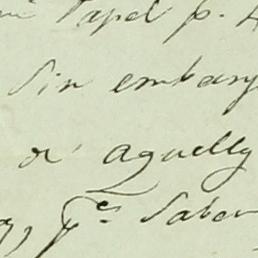 Papel p. 4
Sin embarg
a aquelly
q.e Saber